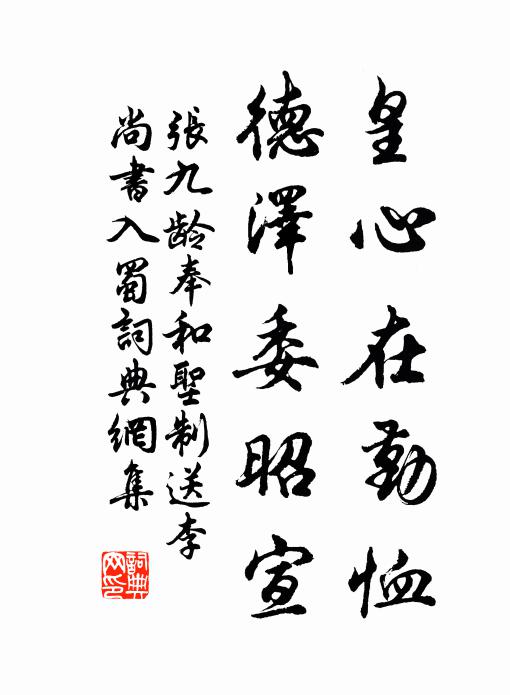 皇心在勤恤
德澤委昭宣
張九龄奉和聖制送李
尚書入蜀詞典網集
詞典网印